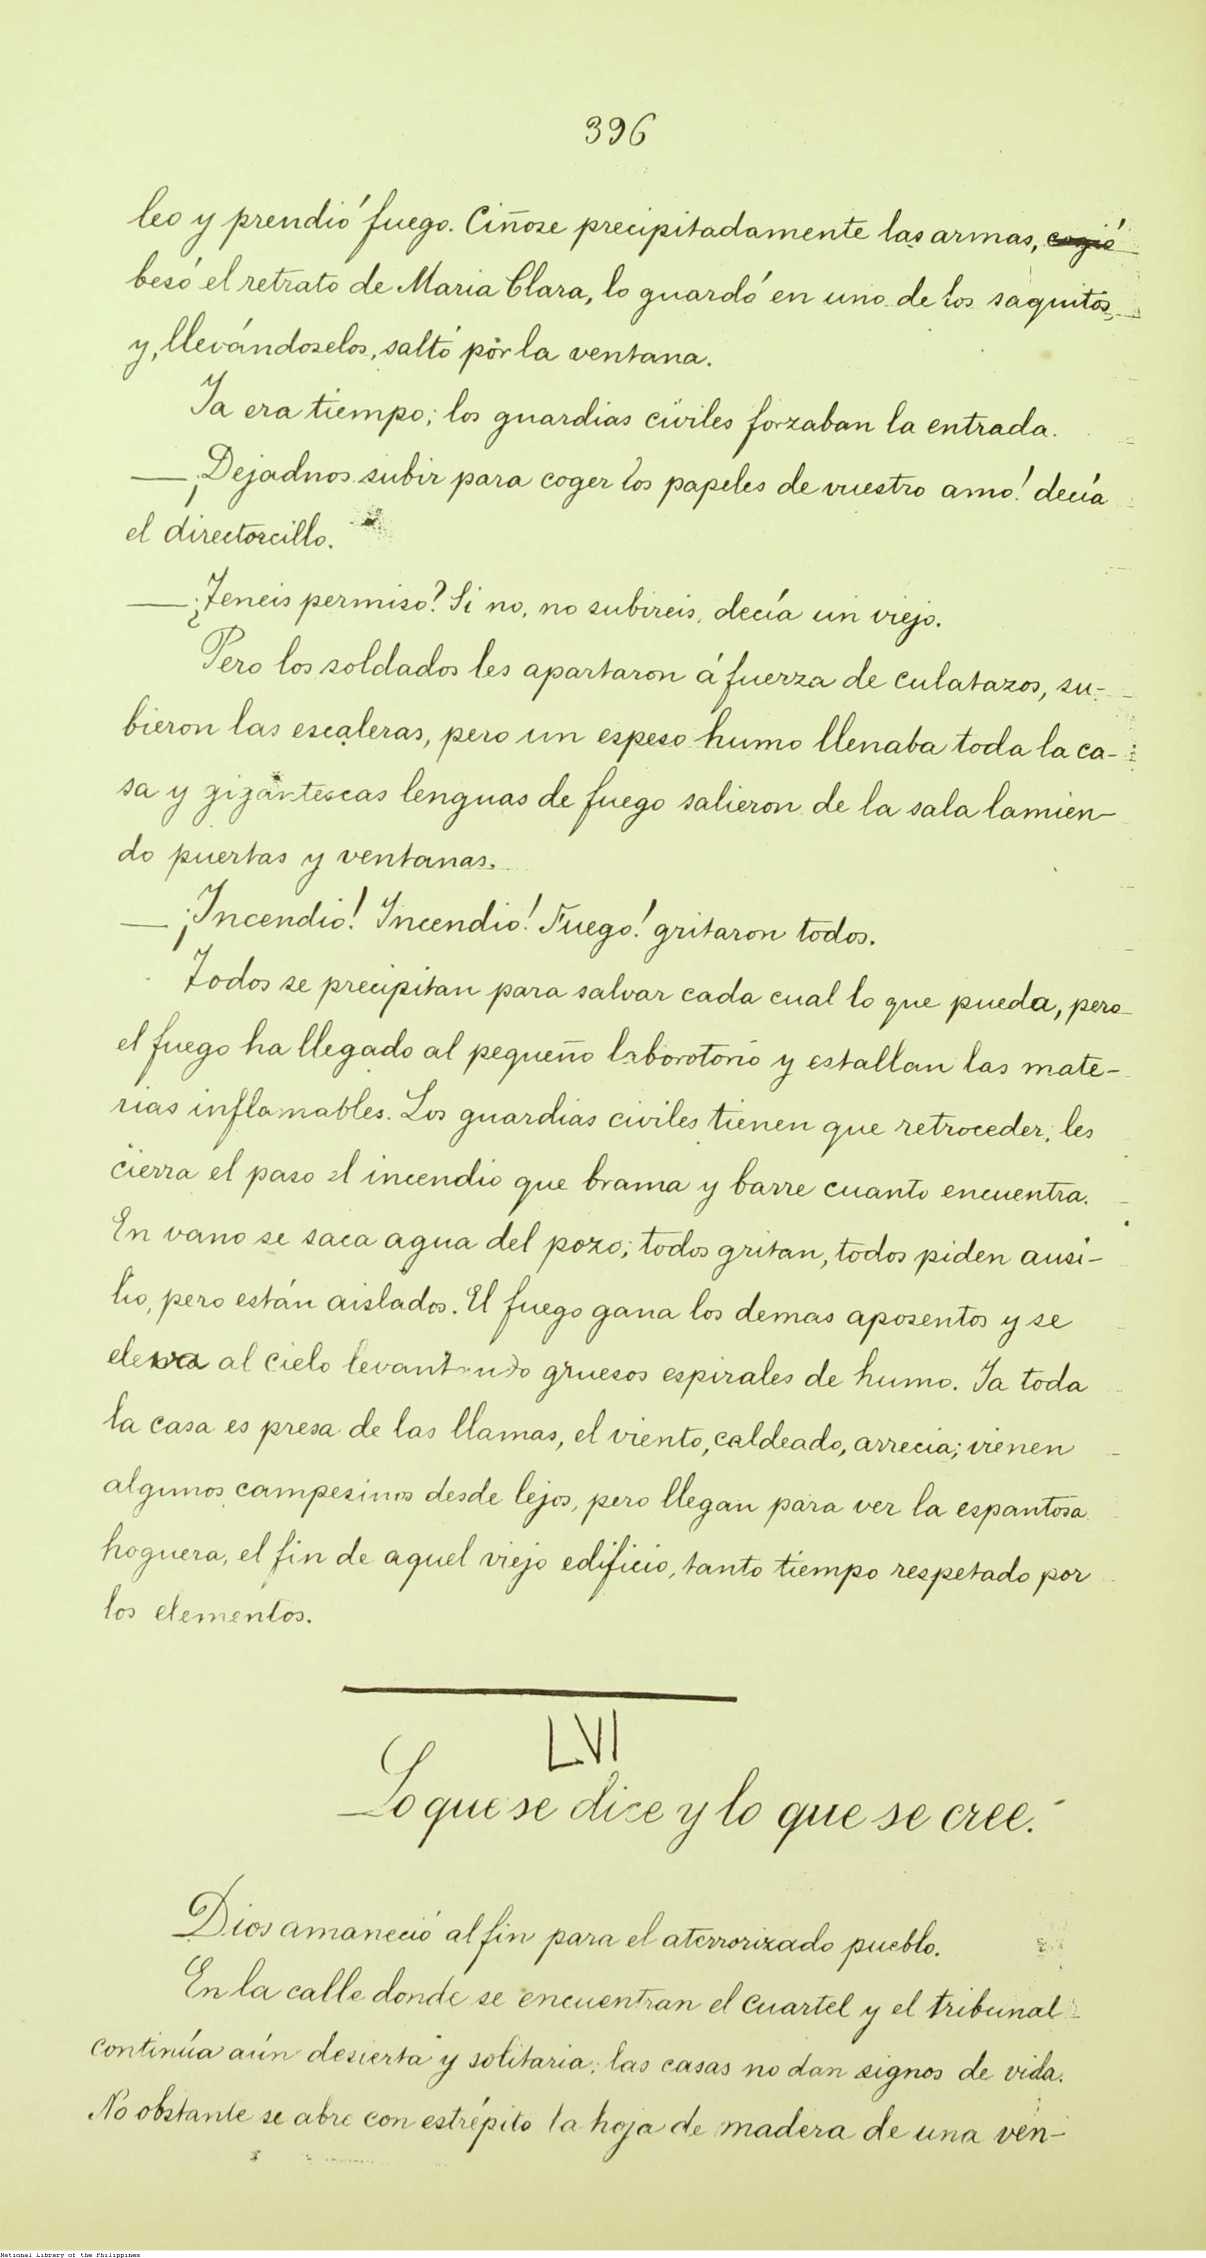 396
leo y prendió fuego. Ciñose precipitadamente las armas, cogió
besó el retrato de Maria Clara, lo guardó en uno de los saquitos
y, llevándoselos, saltó por la ventana.
Ya era tiempo; los guardias civiles forzaban la entrada.
— ¡Dejadnos subir para coger los papeles de vuestro amo! decía
el directorcillo.
— ¿Teneis permiso? Si no, no subireis, decía un viejo.
Pero los soldados les apartaron á fuerza de culatazos, su-
bieron las escaleras, pero un espeso humo llenaba toda la ca-
sa y gigantescas lenguas de fuego salieron de la sala lamien-
do puertas y ventanas.
— ¡Incendio! Incendio! Fuego! gritaron todos.
Todos se precipitan para salvar cada cual lo que pueda, pero
el fuego ha llegado al pequeño laborotorio y estallan las mate-
rias inflamables. Los guardias civiles tienen que retroceder, les
cierra el paso el incendio que brama y barre cuanto encuentra.
En vano se saca agua del pozo; todos gritan, todos piden ausi-
lio, pero están aislados. El fuego gana los demas aposentos y se
eleva al cielo levantando gruesos espirales de humo. Ya toda
la casa es presa de las llamas, el viento, caldeado, arrecia; vienen
algunos campesinos desde lejos, pero llegan para ver la espantosa
hoguera, el fin de aquel viejo edificio, tanto tiempo respetado por
los elementos.
LVI
Lo que se dice y lo que se cree.
Dios amaneció al fin para el aterrorizado pueblo.
En la calle donde se encuentran el cuartel y el tribunal
continúa aún desierta y solitaria; las casas no dan signos de vida.
No obstante se abre con estrépito la hoja de madera de una ven-
National Library of the Philippines